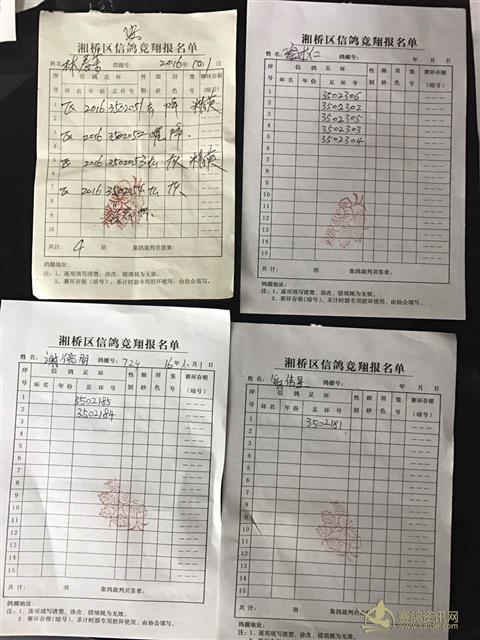 湘桥区信鸽竞翔报名单
姓名: 鸽棚号: 2016年10月1日
序号 信鸽足环 性别 眼砂 羽色 笼号 赛环存根(暗号)
环名 年份 足环号
1 2016 3502051
3 2016 3502052 雌 降
5 2016 3502053
7 2016 3502054
9
10
共计: 4 羽 集鸽裁判员签章:
鸽棚地址:
注: 1、逐项填写清楚、涂改、错填视为无效。
2、赛环存根(暗号)、系计时器专用胶环使用、由协会填写。
湘桥区信鸽竞翔报名单
姓名: 鸽棚号: 年 月 日
序号 信鸽足环 性别 眼砂 羽色 笼号 赛环存根(暗号)
环名 年份 足环号
1 3502306
2 3502302
3 3502305
4 3502303
5 3502304
6
7
8
9
10
11
12
13
14
15
共计: 羽 集鸽裁判员签章:
鸽棚地址:
注: 1、逐项填写清楚、涂改、错填视为无效。
2、赛环存根(暗号)、系计时器专用胶环使用、由协会填写。
湘桥区信鸽竞翔报名单
姓名: 谢德明 鸽棚号: 724 16年 月1日
序号 信鸽足环 性别 眼砂 羽色 笼号 赛环存根(暗号)
环名 年份 足环号
1 3502185
2 3502184
3
4
5
6
7
8
9
10
11
12
13
14
15
共计: 羽 集鸽裁判员签章:
鸽棚地址:
注: 1、逐项填写清楚、涂改、错填视为无效。
2、赛环存根(暗号)、系计时器专用胶环使用、由协会填写。
湘桥区信鸽竞翔报名单
姓名: 鸽棚号: 年 月 日
序号 信鸽足环 性别 眼砂 羽色 笼号 赛环存根(暗号)
环名 年份 足环号
1 3502181
2
3
4
5
6
7
8
9
10
11
12
13
14
15
共计: 羽 集鸽裁判员签章:
鸽棚地址:
注: 1、逐项填写清楚、涂改、错填视为无效。
2、赛环存根(暗号)、系计时器专用胶环使用、由协会填写。
赛鸽资讯网
www.saige.com